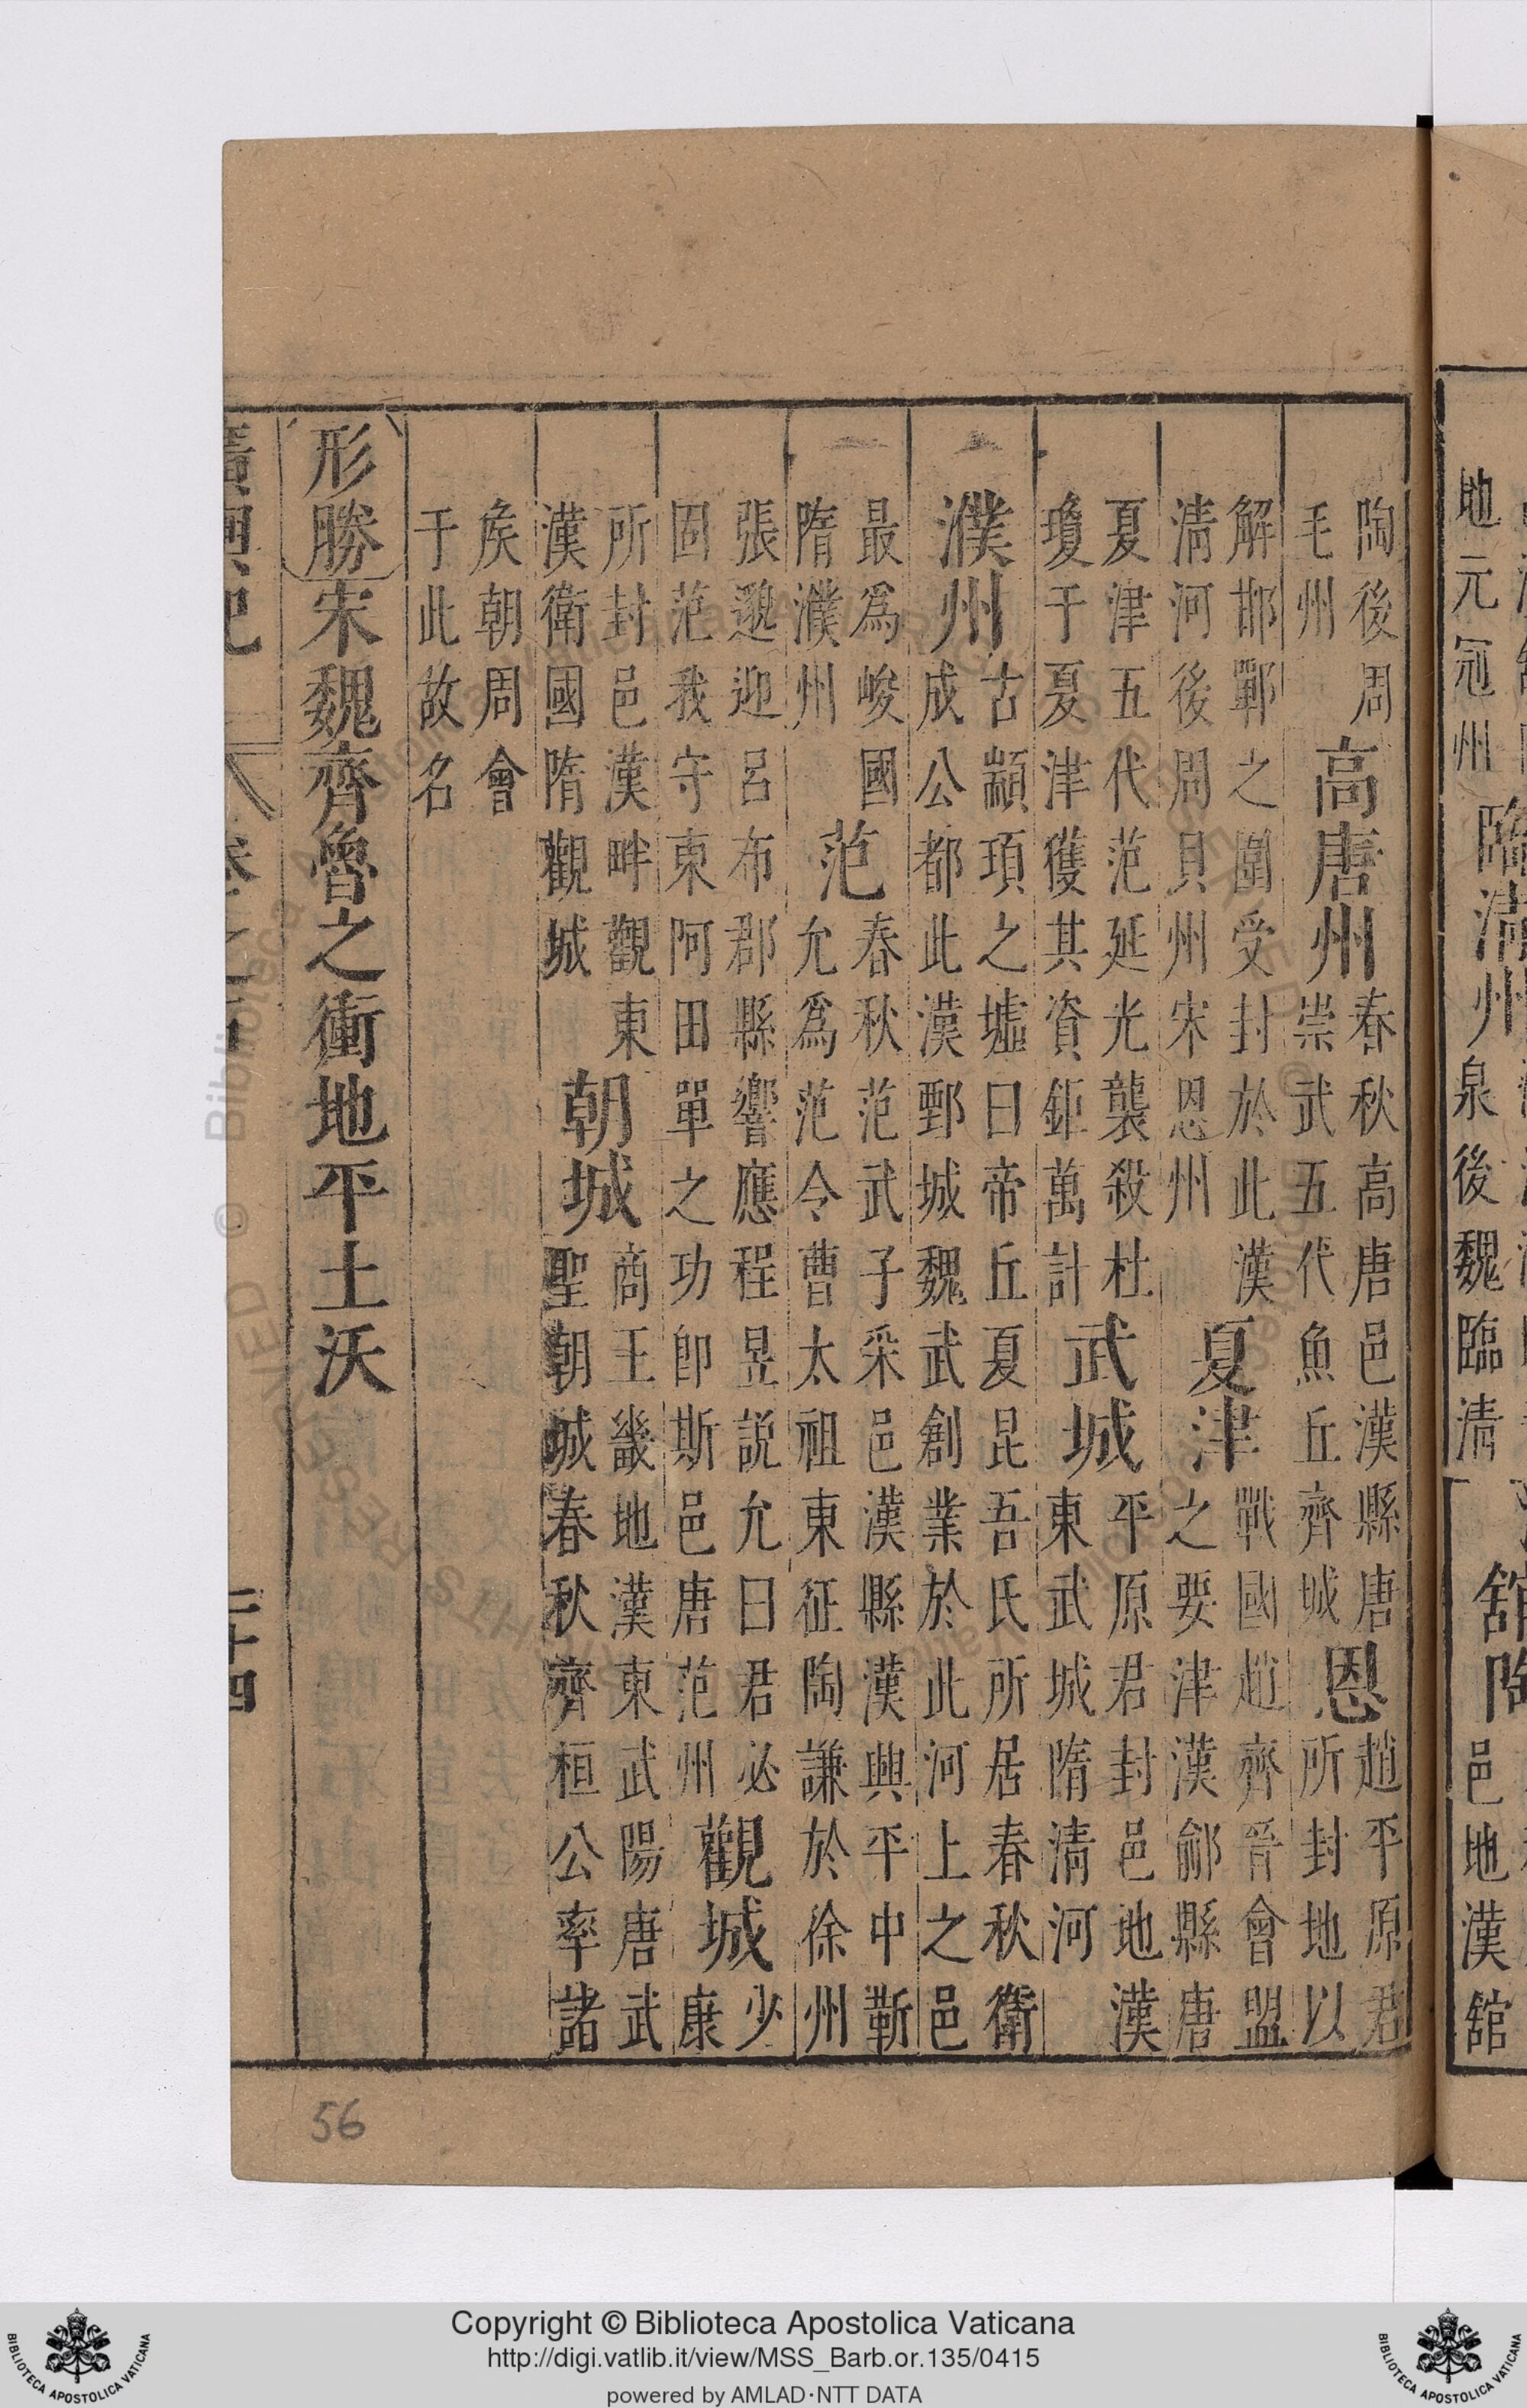 地元冠州
臨清州
泉後魏臨清
館陶
邑地漢館
陶後周
毛州
高唐州
春秋高唐邑漢縣唐
崇武五代魚丘齊城
恩
趙平原君
所封地以
解邯鄲之圍受封於此漢
清河後周貝州宋恩州
夏津
戰國趙齊晉會盟
之要津漢鄃縣唐
夏津五代范延光襲殺杜
瓊于夏津獲其資鉅萬計
武城
平原君封邑地漢
東武城隋清河
濮州
古顓頊之墟曰帝丘夏昆吾氏所居春秋衛
成公都此漢鄄城魏武創業於此河上之邑
最為峻國
隋濮州
范
春秋范武子采邑漢縣漢興平中靳
允為范令曹太祖東征陶謙於徐州
張邈迎呂布郡縣響應程昱說允曰君必
固范我守東阿田單之功卽斯邑唐范州
觀城
少
康
所封邑漢畔觀東
漢衛國隋觀城
朝城
商王畿地漢東武陽唐武
聖朝城春秋齊桓公率諸
矦朝周會
于此故名
形勝宋魏齊魯之衝地平土沃
廣輿記
二十四
56
Copyright © Biblioteca Apostolica Vaticana
http://digi.vatlib.it/view/MSS_Barb.or.135/0415
powered by AMLAD·NTT DATA